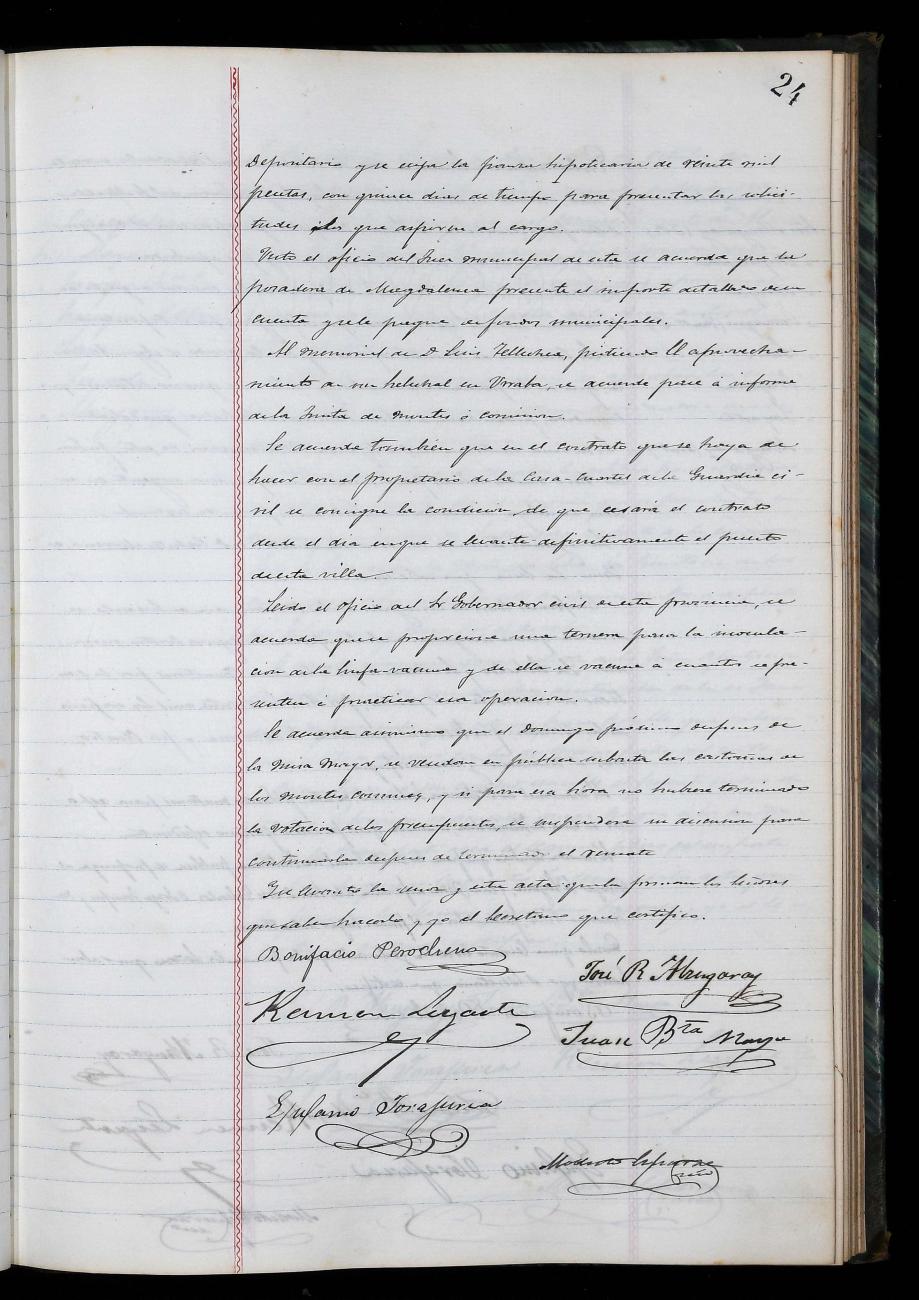 24
Depositario y se exija la fianza hipotecaria de veinte mil
pesetas, con quince dias de tiempo para presentar las solici-
tudes los que aspiren al cargo.
Visto el oficio del Juez municipal de esta se acuerda que la
posadera de Magdalena presente el importe detallado de su
cuenta y se le pague de fondos municipales.
Al memorial de D. Luis Tellechea, pidiendo el aprovecha-
miento de un helechal en Urraba, se acuerda pase á informe
de la Junta de Montes ó comision.
Se acuerda tambien que en el contrato que se haya de
hacer con el propietario de la Casa-Cuartel de la Guardia ci-
vil se consigne la condicion de que cesará el contrato
desde el dia en que se levante definitivamente el puesto
de esta villa.
Leido el oficio del Sr Gobernador civil de esta provincia, se
acuerda que se proporcione una ternera para la inocula-
cion de la linfa-vacuna y de ella se vacune á cuantos se pre-
senten á practicar esa operacion.
Se acuerda asimismo que el Domingo próximo despues de
la Misa Mayor, se vendan en pública subasta las castañas de
los montes comunes, y si para esa hora no hubiese terminado
la votacion de los presupuestos, se suspendera su discusion para
continuarla despues de terminado el remate
Se levantó la sesion y esta acta que la firman los Señores
que saben hacerlo y yo el Secretario que certifico.
Bonifacio Perochena
José R. Abugaray
Ramon Legasti
Juan Bta Maya
Epifanio Torajuria
Modesto Esparza